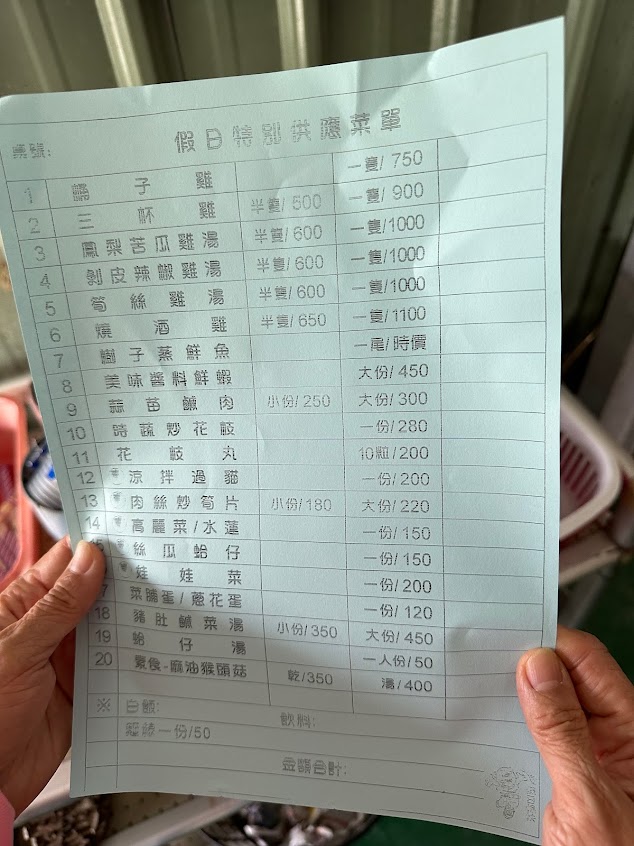 假日特別供應菜單
桌號:
1 子雞 一隻/750
2 三杯雞 半隻/500 一隻/900
3 鳳梨苦瓜雞湯 半隻/600 一隻/1000
4 剝皮辣椒雞湯 半隻/600 一隻/1000
5 筍絲雞湯 半隻/600 一隻/1000
6 燒酒雞 半隻/650 一隻/1100
7 樹子蒸鮮魚 一尾/時價
8 美味醬料鮮蝦 大份/450
9 蒜苗鹹肉 小份/250 大份/300
10 時蔬炒花枝 一份/280
11 花枝丸 10粒/200
12 涼拌過貓 一份/200
13 肉絲炒筍片 小份/180 大份/220
14 高麗菜/水蓮 一份/150
5 絲瓜蛤仔 一份/150
娃娃菜 一份/200
7 菜脯蛋/蔥花蛋 一份/120
18 豬肚鹹菜湯 小份/350 大份/450
19 蛤仔湯 一人份/50
20 素食-麻油猴頭菇 乾/350 湯/400
※ 白飯: 飲料:
麵線一份/50
金額合計: